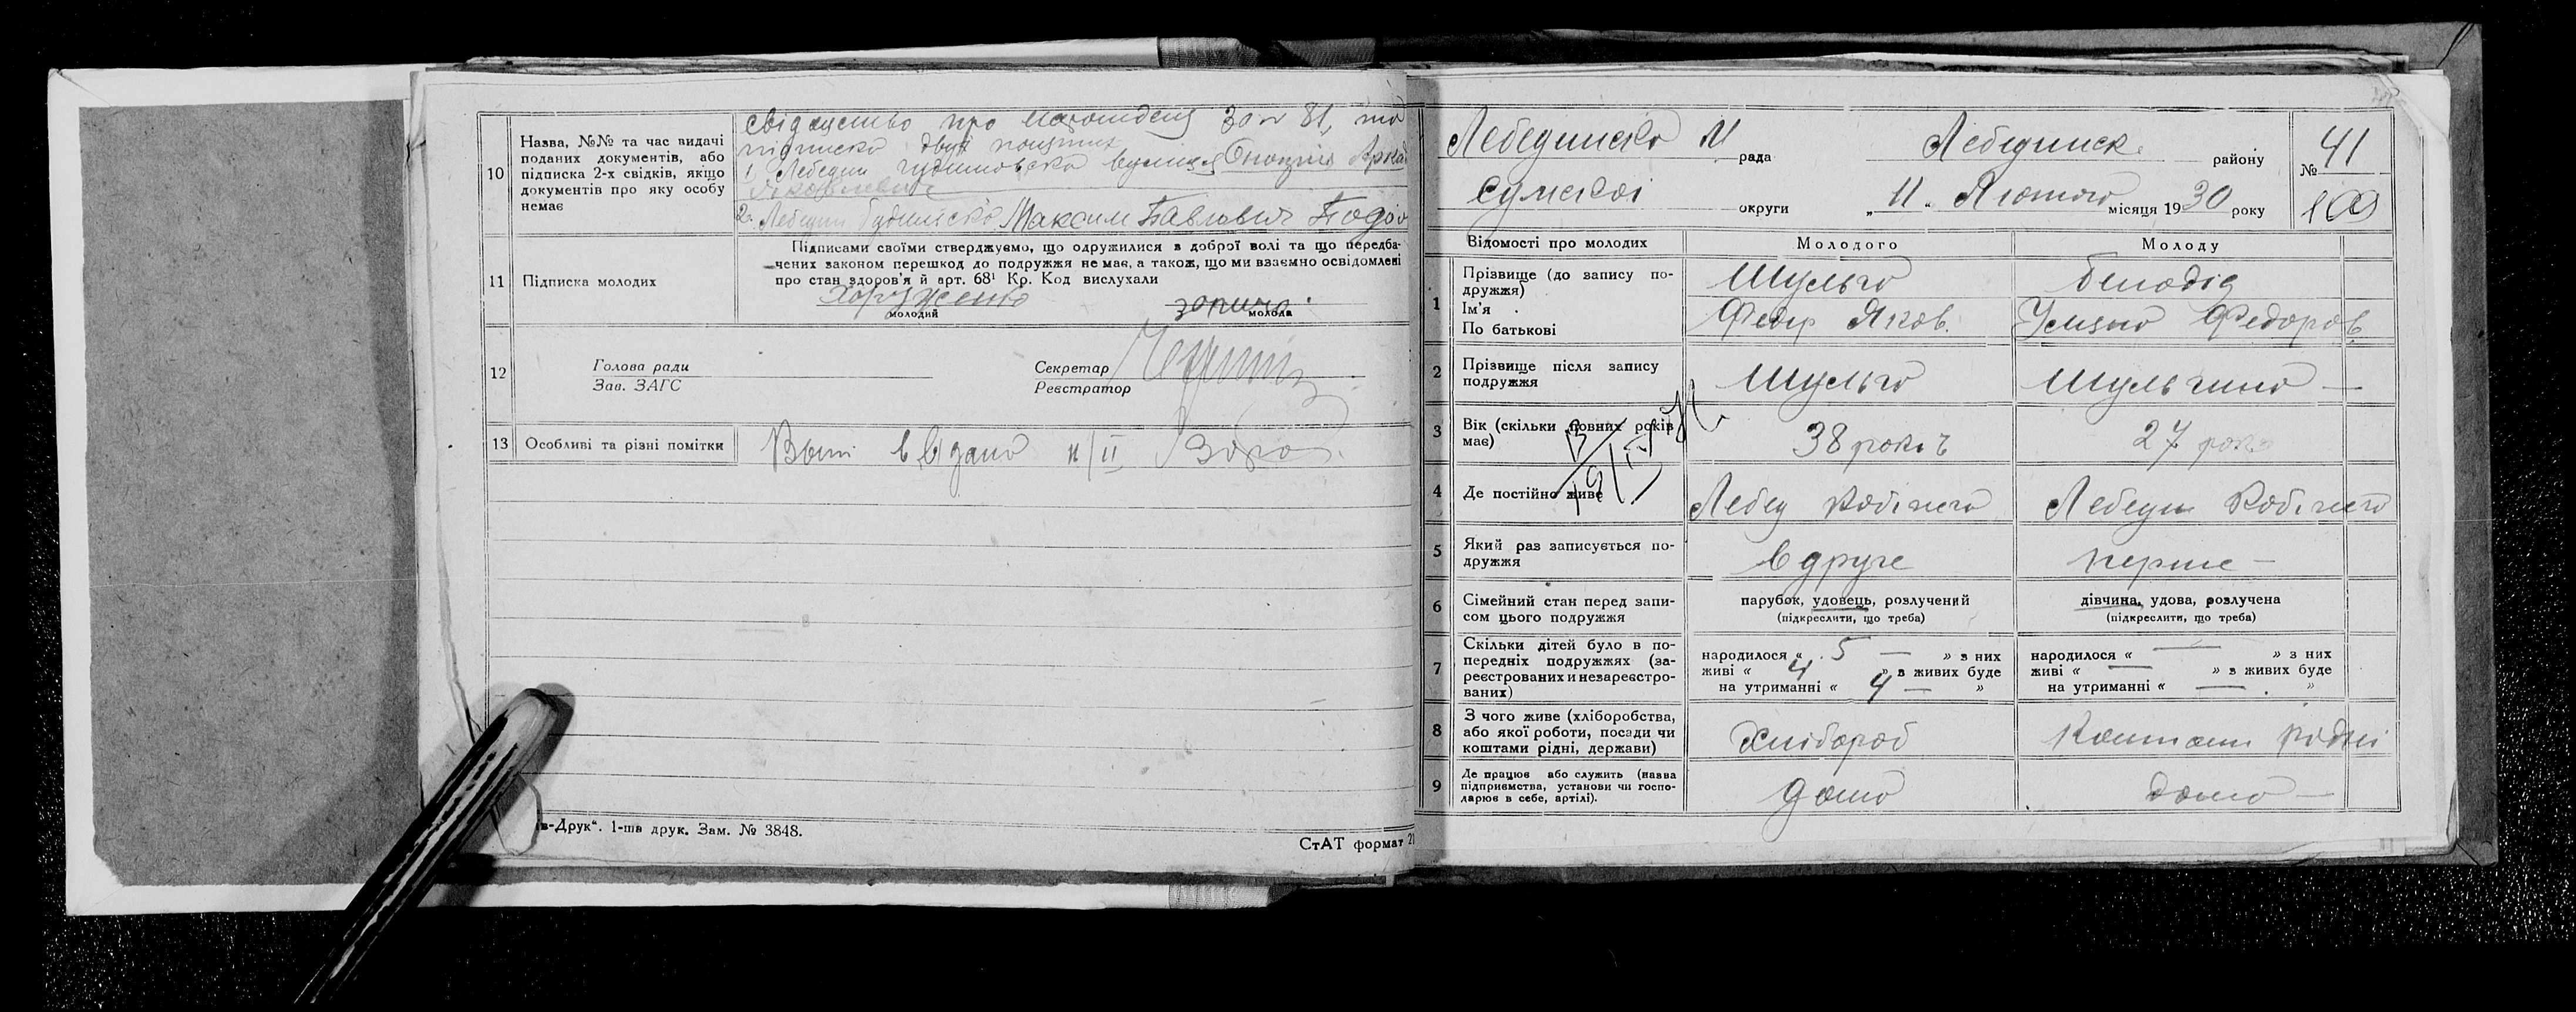 10
Назва, №№ та час видачі
поданих документів, або
підписка 2-х свідків, якщо
документів про яку особу
немає
свідоцтво про 30 81, та
підписка двух
1, Лебедин вулиця
2. Лебедин Максим Павлович
11
Підписка молодих
Підписами своїми стверджуємо, що одружилися з доброї волі та що передба-
чених законом перешкод до подружжя не має, а також, що ми взаємно освідомлені
про стан здоров'я й арт. 68¹ Кр. Код вислухали
молодий
молода
12
Голова ради
Зав. ЗАГС
Секретар
Реєстратор
13
Особливі та різні помітки
видано 11/II
в-Друк“. 1-ша друк. Зам. № 3848.
СтАТ формат 21
Лебединска М рада
Лебединск. району
№ 41
Сумскоі округи
„11“ Лютого місяця 1930 року
109
Відомості про молодих
Молодого
Молоду
1
Прізвище (до запису по-
дружжя)
Ім'я
По батькові
Шульга
Білодід
Федир Яков.
Федоров.
2
Прізвище після запису
подружжя
Шульга
Шульгина —
3
Вік (скільки повних років
має)
38 років
27 рок
4
Де постійно живе
Лебед
Лебедин
5
Який раз записується по-
дружжя
вдруге
перше —
6
Сімейний стан перед запи-
сом цього подружжя
парубок, удовець, розлучений
(підкреслити, що треба)
дівчина, удова, розлучена
(підкреслити, що треба)
7
Скільки дітей було в по-
передніх подружжях (за-
реєстрованих и незареєстро-
ваних)
народилося « 5 — » з них
живі « 4 » з живих буде
на утриманні « 4 — »
народилося « — » з них
живі « — » з живих буде
на утриманні « — »
8
З чого живе (хліборобства,
або якої роботи, посади чи
коштами рідні, держави)
Хлібороб
Коштами рідні
9
Де працює або служить (назва
підприємства, установи чи госпо-
дарює в себе, артілі).
дома
дома —